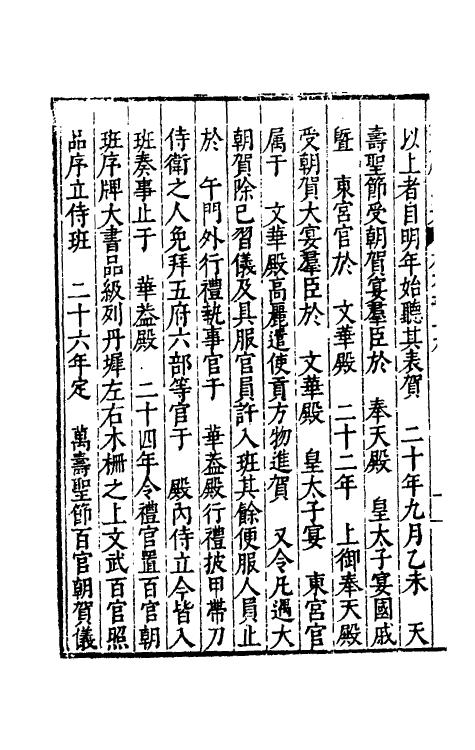 以上者自明年始聽其表賀　二十年九月乙未　天
壽聖節受朝賀宴羣臣於　奉天殿　皇太子宴國戚
曁　東宮官於　文華殿　二十二年　上御奉天殿
受朝賀大宴羣臣於　文華殿　皇太子宴　東宮官
属于　文華殿高麗遣使貢方物進賀　又令凡遇大
朝賀除已習儀及具服官員許入班其餘便服人員止
於　午門外行禮執事官于　華葢殿行禮披甲帶刀
侍衛之人免拜五府六部等官于　殿內侍立今皆入
班奏事止于　華葢殿　二十四年令禮官置百官朝
班序牌大書品級列丹墀左右木栅之上文武百官照
品序立侍班　二十六年定　萬壽聖節百官朝賀儀